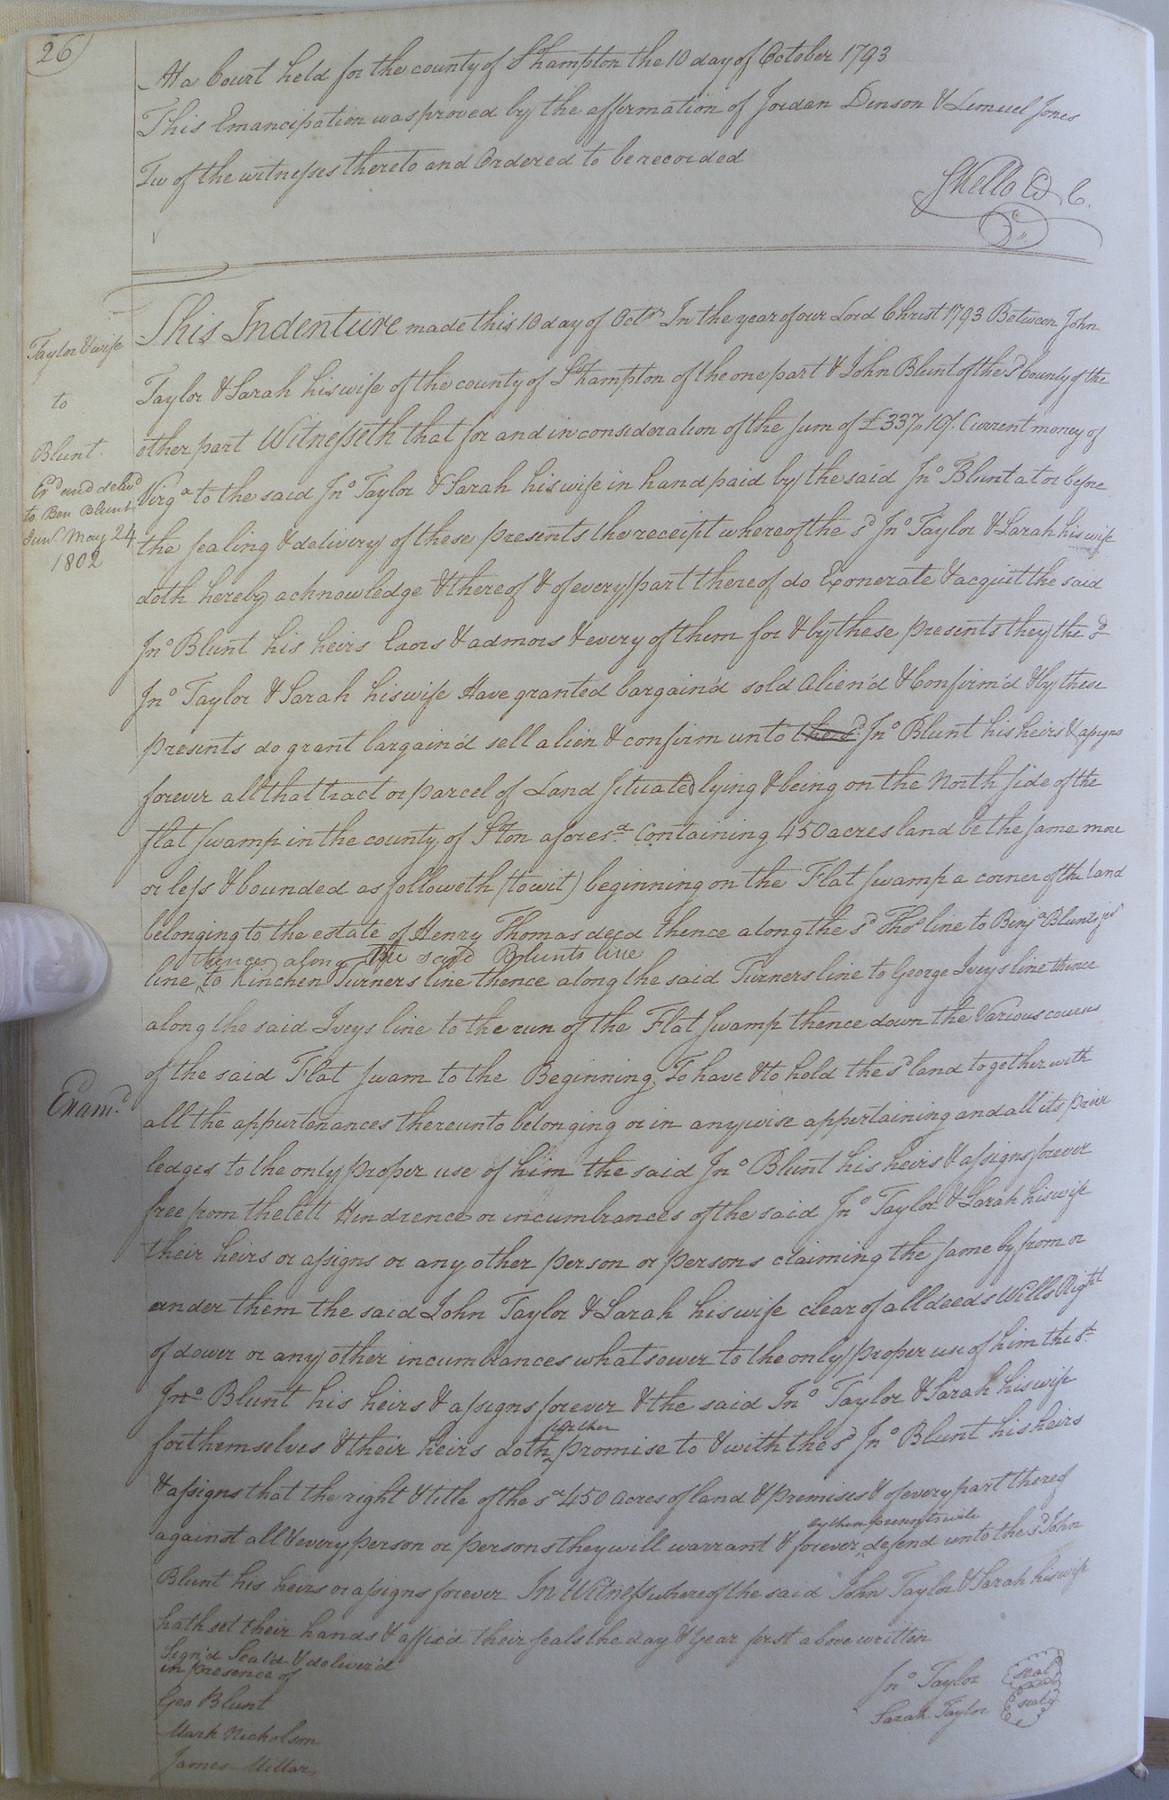 26
At a Court held for the county of S:hampton the 10 day of October 1793
This Emancipation was proved by the affirmation of Jordan Denson & Lemuel Jones
Two of the witnesses thereto and Ordered to be recorded
SKello Cd. C.
Taylor & wife
to
Blunt
Exd. and delivd
to Ben Blunt
Junr. May 24
1802
This Indenture made this 10 day of Octr. In the year of our Lord Christ 1793 Between John
Taylor & Sarah his wife of the county of S:hampton of the one part & John Blunt of the sd. County of the
other part Witnesseth that for and in consideration of the sum of £337.10/. Current money of
Virga. to the said Jno. Taylor & Sarah his wife in hand paid by the said Jno. Blunt at or before
the sealing & delivery of these presents the receipt whereof the sd. Jno. Taylor & Sarah his wife
doth hereby acknowledge & thereof & of every part thereof do Exonerate & acquit the said
Jno. Blunt his heirs Exors & admors & every of them for & by these presents they the sd.
Jno. Taylor & Sarah his wife Have granted bargain'd sold Alien'd & Confirm'd & by these
presents do grant bargain'd sell alien & confirm unto the sd. Jno. Blunt his heirs & assigns
forever all that tract or parcel of Land situated lying & being on the North side of the
flat swamp in the county of S:ton aforesd. Containing 450 acres land be the same more
or less & bounded as followeth (towit) beginning on the Flat swamp a corner of the land
belonging to the estate of Henry Thomas decd thence along the sd. Thos. line to Benja. Blunts jr
thence along the said Blunts line
line to Kinchen Turners line thence along the said Turners line to George Iveys line thence
along the said Iveys line to the run of the Flat swamp thence down the Various courses
of the said Flat swam to the Beginning. To have & to hold the sd. land together with
Examd.
all the appurtenances thereunto belonging or in anywise appertaining and all its privi
ledges to the only proper use of him the said Jno. Blunt his heirs & assigns forever
free from the lett Hindrence or incumbrances of the said Jno. Taylor & Sarah his wife
their heirs or assigns or any other person or persons claiming the same by from or
under them the said John Taylor & Sarah his wife clear of all deeds Wills Right
of dower or any other incumbrances whatsower to the only proper use of him the sd.
Jno. Blunt his heirs & assigns forever & the said Jno. Taylor & Sarah his wife
further
for themselves & their heirs doth promise to & with the sd. Jno. Blunt his heirs
& assigns that the right & title of the sd. 450 acres of land & premises & of every part thereof
by these presents will
against all & every person or persons they will warrant & forever defend unto the sd. John
Blunt his heirs or assigns forever In Witness whereof the said John Taylor & Sarah his wife
hath set their hands & affix'd their seals the day & year first above written
Sign'd Seal'd & deliver'd
in presence of
Geo Blunt
Mark Nicholson
James Millar
Jno. Taylor seal
Sarah Taylor seal